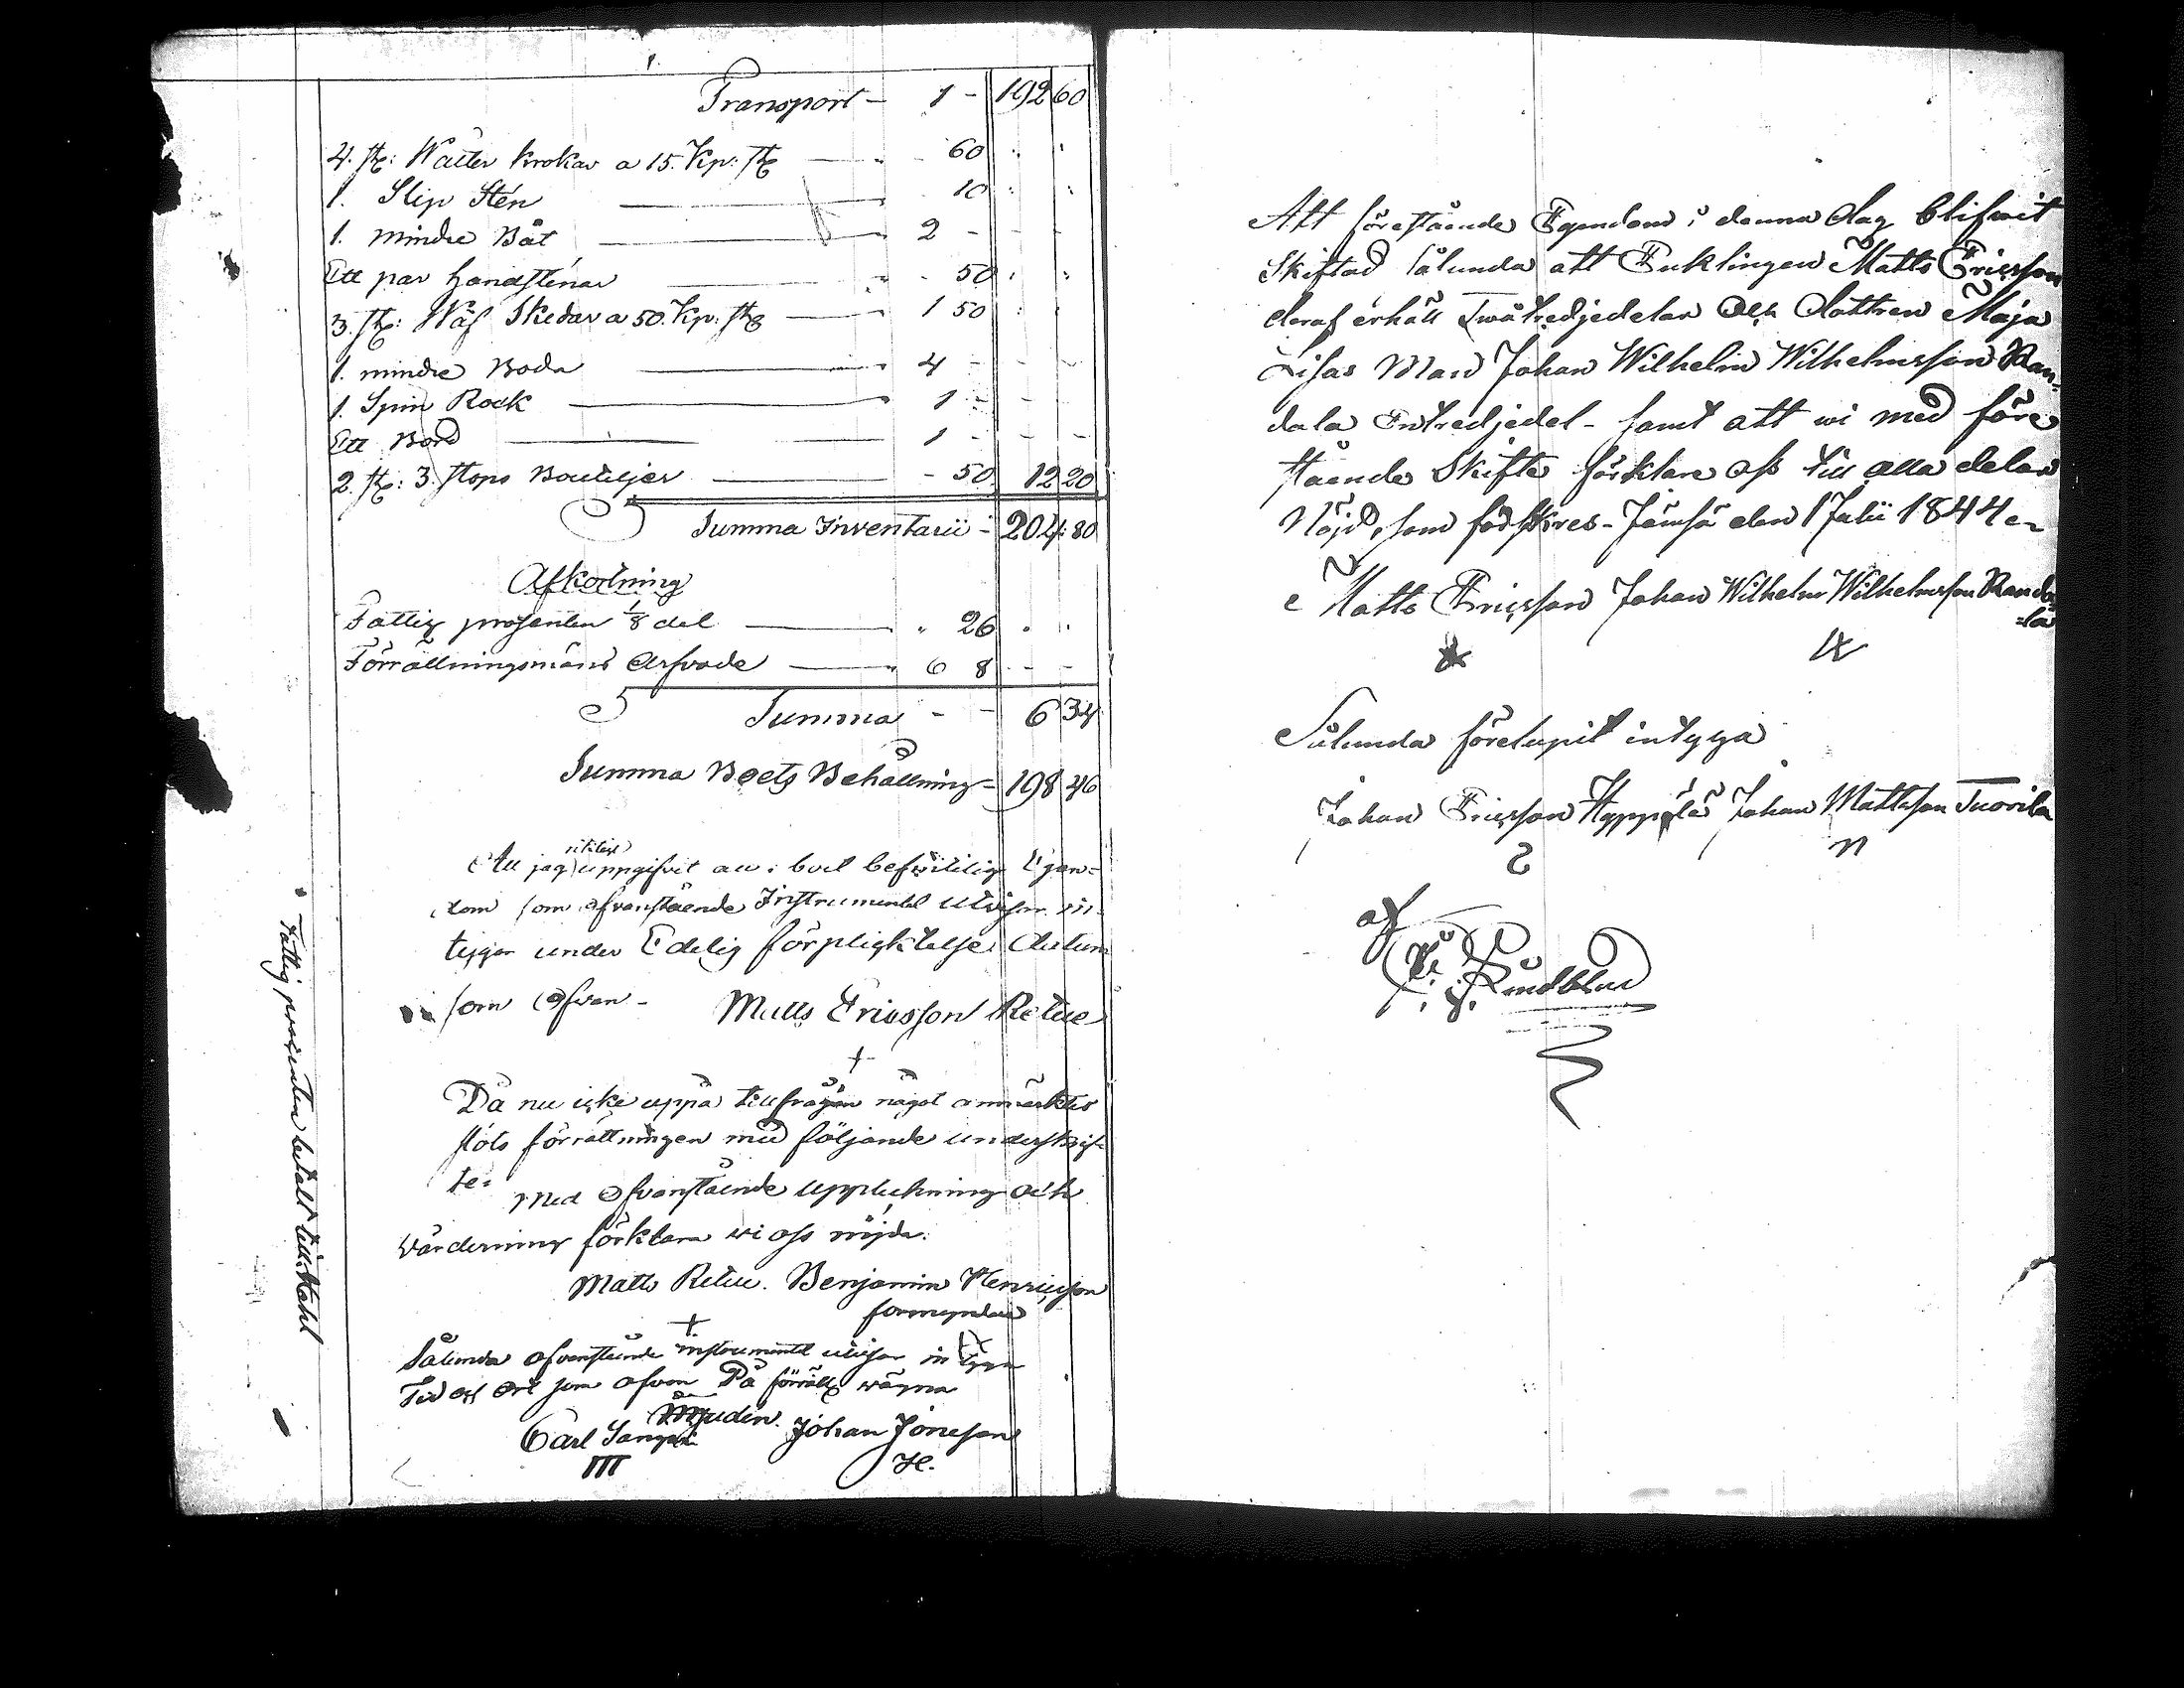 Transport - 1 - 192 60
4. st: Watten krokar a 15. Kp: st 60
1. Slip Sten 10
1. mindre Båt 2 -
Ett par handstenar 50
3. st: Wäf Skedar a 50. Kp: st 1 50
1. mindre Boda 4 -
1. Spin Rock 1 -
Ett Bord 1 -
2. st: 3. stops Bouteljer - 50 12 20
Summa Inventarii - 204: 80
Afkortning
Fattig prosenten 1/8 del 26
Förrättningsmäns Arfvode 6 8
Summa - - 6 34
Summa Boets Behållning - 198 46
Att jag uppgifvit all i boet befintelig Egen=
dom som ofvanstående Instrumentet utvisar in-
tygar under Edelig förpligktelse Datum
som ofvan - Matts Ericsson Retue
+
Då nu icke uppå tillfrågan något anmärktes
slöts förrättningen med följande underskrif-
te:
Med ofvanstående uppteckning och
värdering förklara vi oss nöjda.
Matts Retue. Benjamin Henricsson
+ förmyndare
Sålunda ofvanstående instrumentet utvisar in tyga
Tid och Ort som ofvan På förrättn: vägna
Carl Johan Jöneson
III H.
Fattig prosenten betalt till
Att förestående Egendom i denna dag blifvit
Skiftad sålunda att Enklingen Matts Ericsson
deraf erhåll twåtredjedelar Och dottren Maja
Lisas Man Johan Wilhelm Wilhelmsson Ran=
dala Entredjedel - samt att wi med före
stående Skifte förklare oss till alla delar
Nöjd, som försäkres - Jämsä den 1 Julii 1844
Matts Ericsson Johan Wilhelm Wilhelmsson Randa
=la
Sålunda förelupit intyga
Johan Ericsson Hyppilä Johan Mattsson Tuovila
af
Sundblad